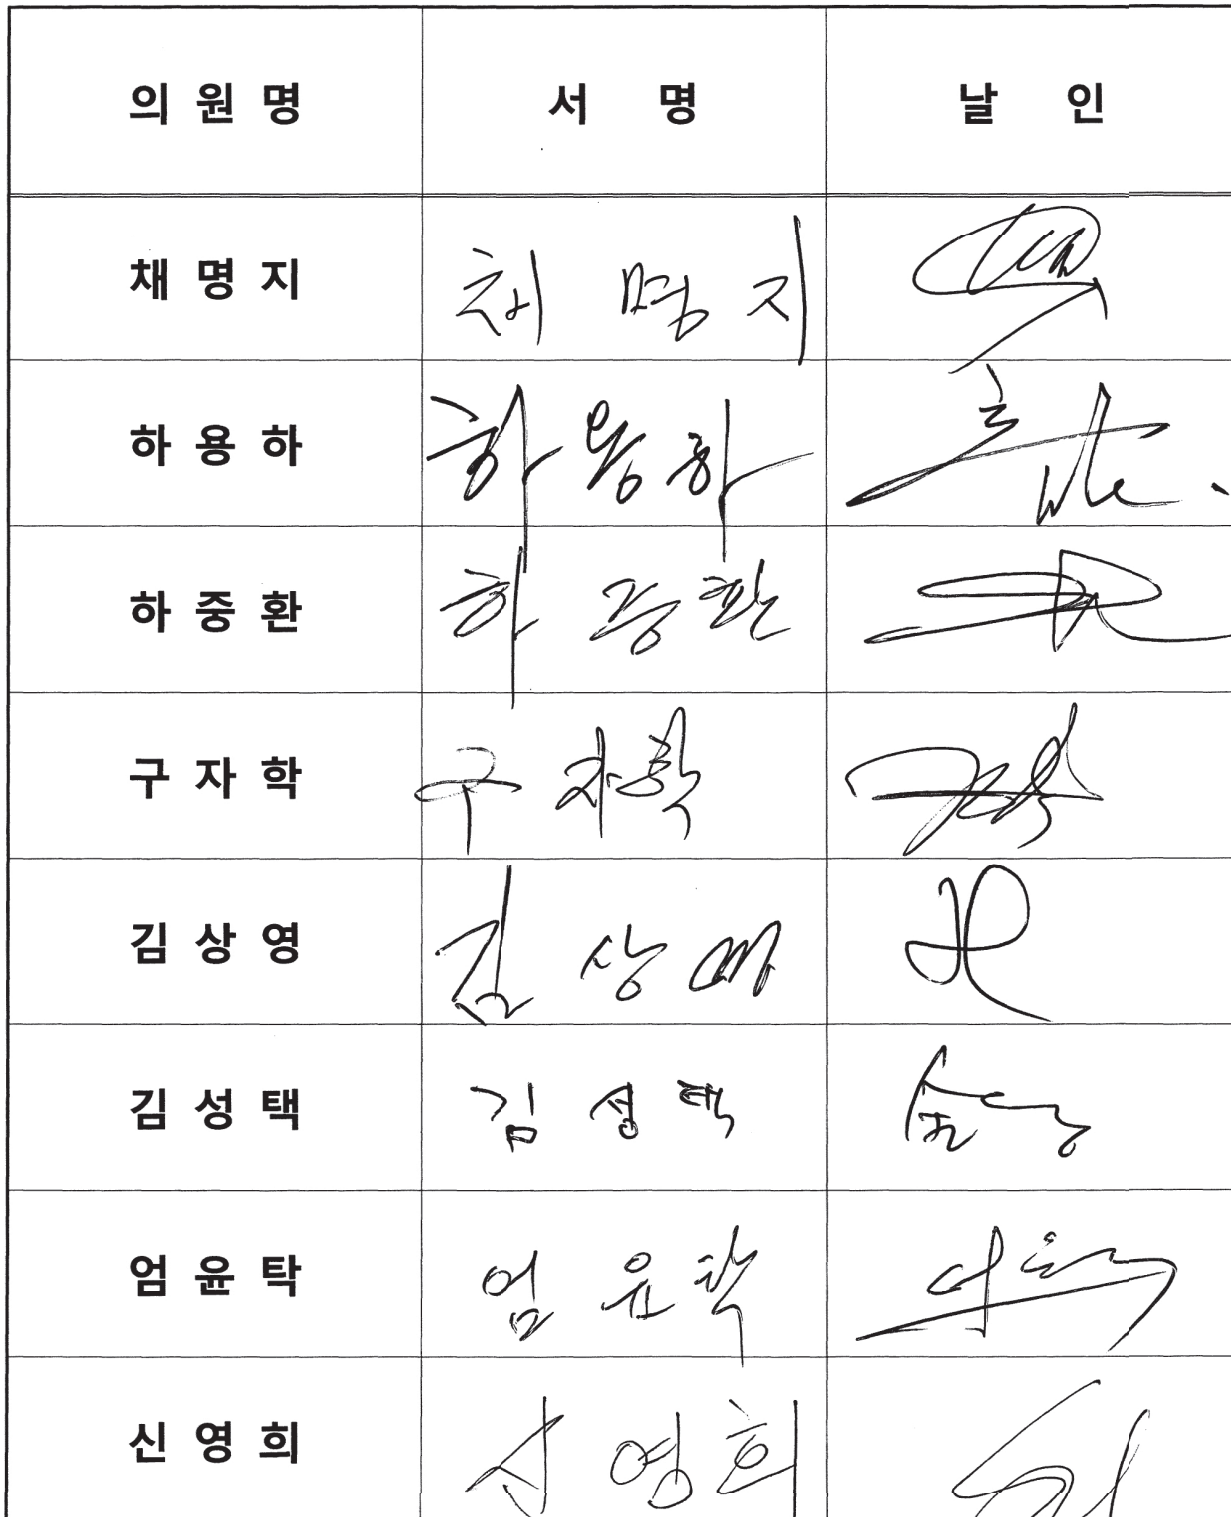 의 원 명 서 명 날 인
채 명 지 채 명 지
하 용 하 하 용 하
하 중 환 하 중 환
구 자 학 구 자 학
김 상 영 김 상 영
김 성 택 김 성 택
엄 윤 탁 엄 윤 탁
신 영 희 신 영 희